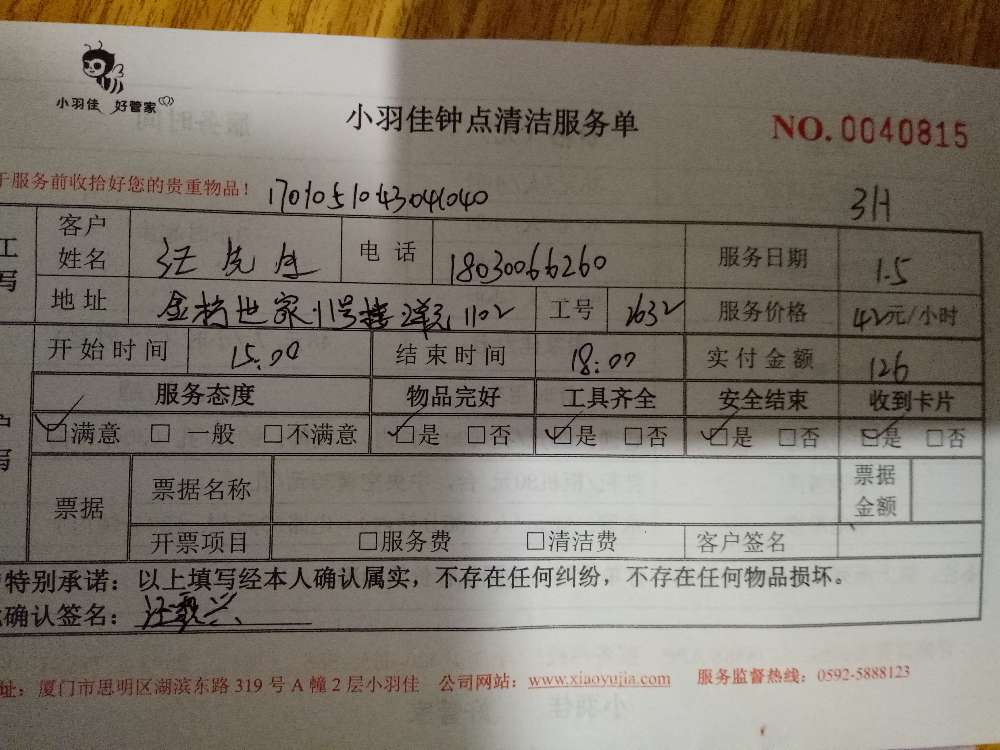 小羽佳 好管家
小羽佳钟点清洁服务单
NO. 0040815
于服务前收拾好您的贵重物品！
1701051043041040
3H
工
写
客户姓名 汪先生 电话 18030066260 服务日期 1.5
地址 世家11号楼2单元1102 工号 2632 服务价格 42元/小时
开始时间 15:00 结束时间 18:00 实付金额 126
服务态度 物品完好 工具齐全 安全结束 收到卡片
户
写
☑满意 □一般 □不满意 ☑是 □否 ☑是 □否 ☑是 □否 ☑是 □否
票据 票据名称 票据金额
开票项目 □服务费 □清洁费 客户签名
特别承诺：以上填写经本人确认属实，不存在任何纠纷，不存在任何物品损坏。
确认签名：汪
址：厦门市思明区湖滨东路 319 号 A 幢 2 层小羽佳 公司网站：www.xiaoyujia.com 服务监督热线：0592-5888123